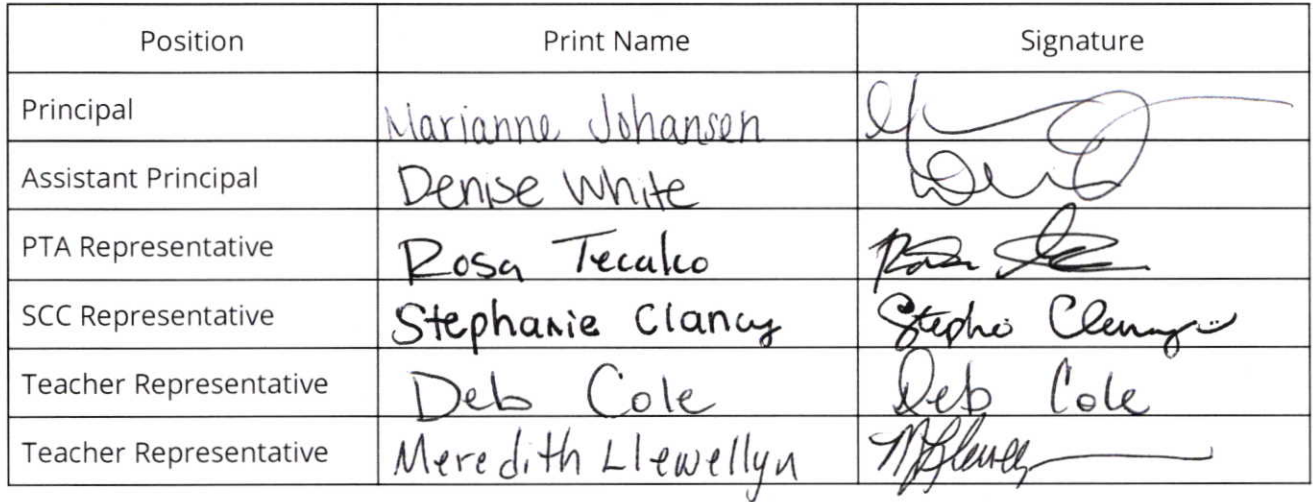 Position Print Name Signature
Principal Marianne Johansen
Assistant Principal Denise White
PTA Representative Rosa Tecalco
SCC Representative Stephanie Clancy
Teacher Representative Deb Cole Deb Cole
Teacher Representative Meredith Llewellyn